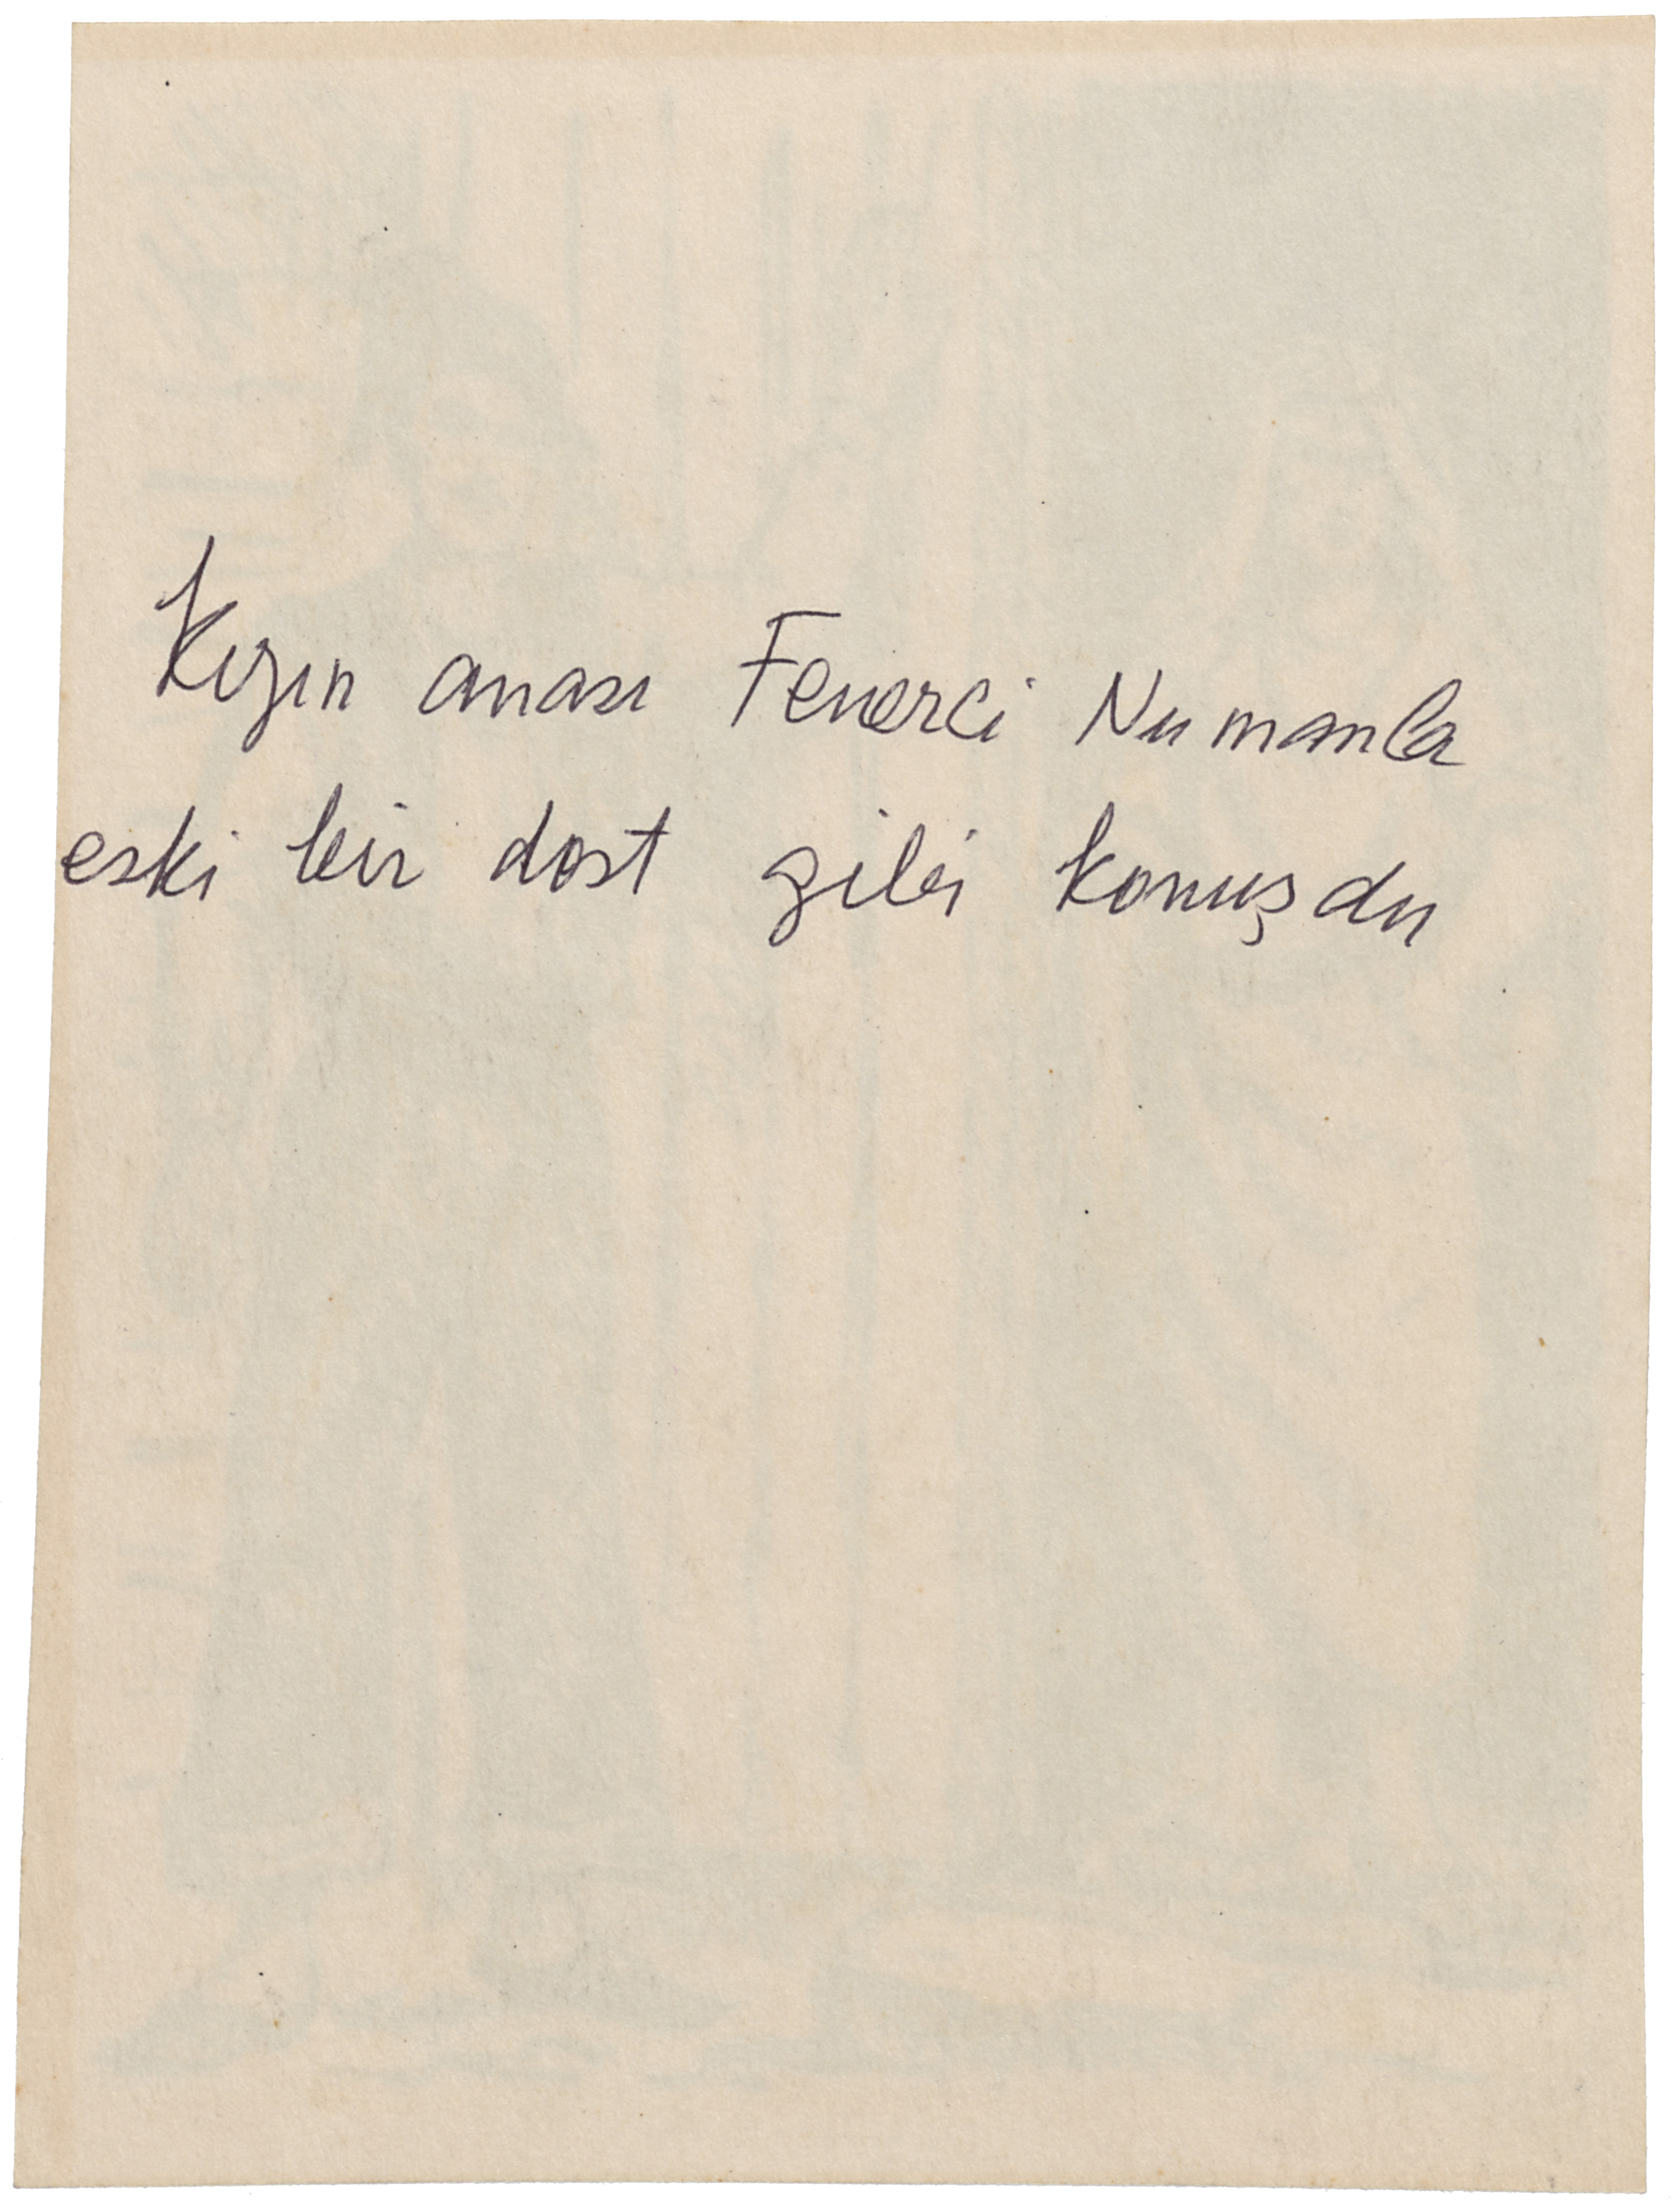 Kızın anası Fenerci Numanla
eski bir dost gibi konuşdu